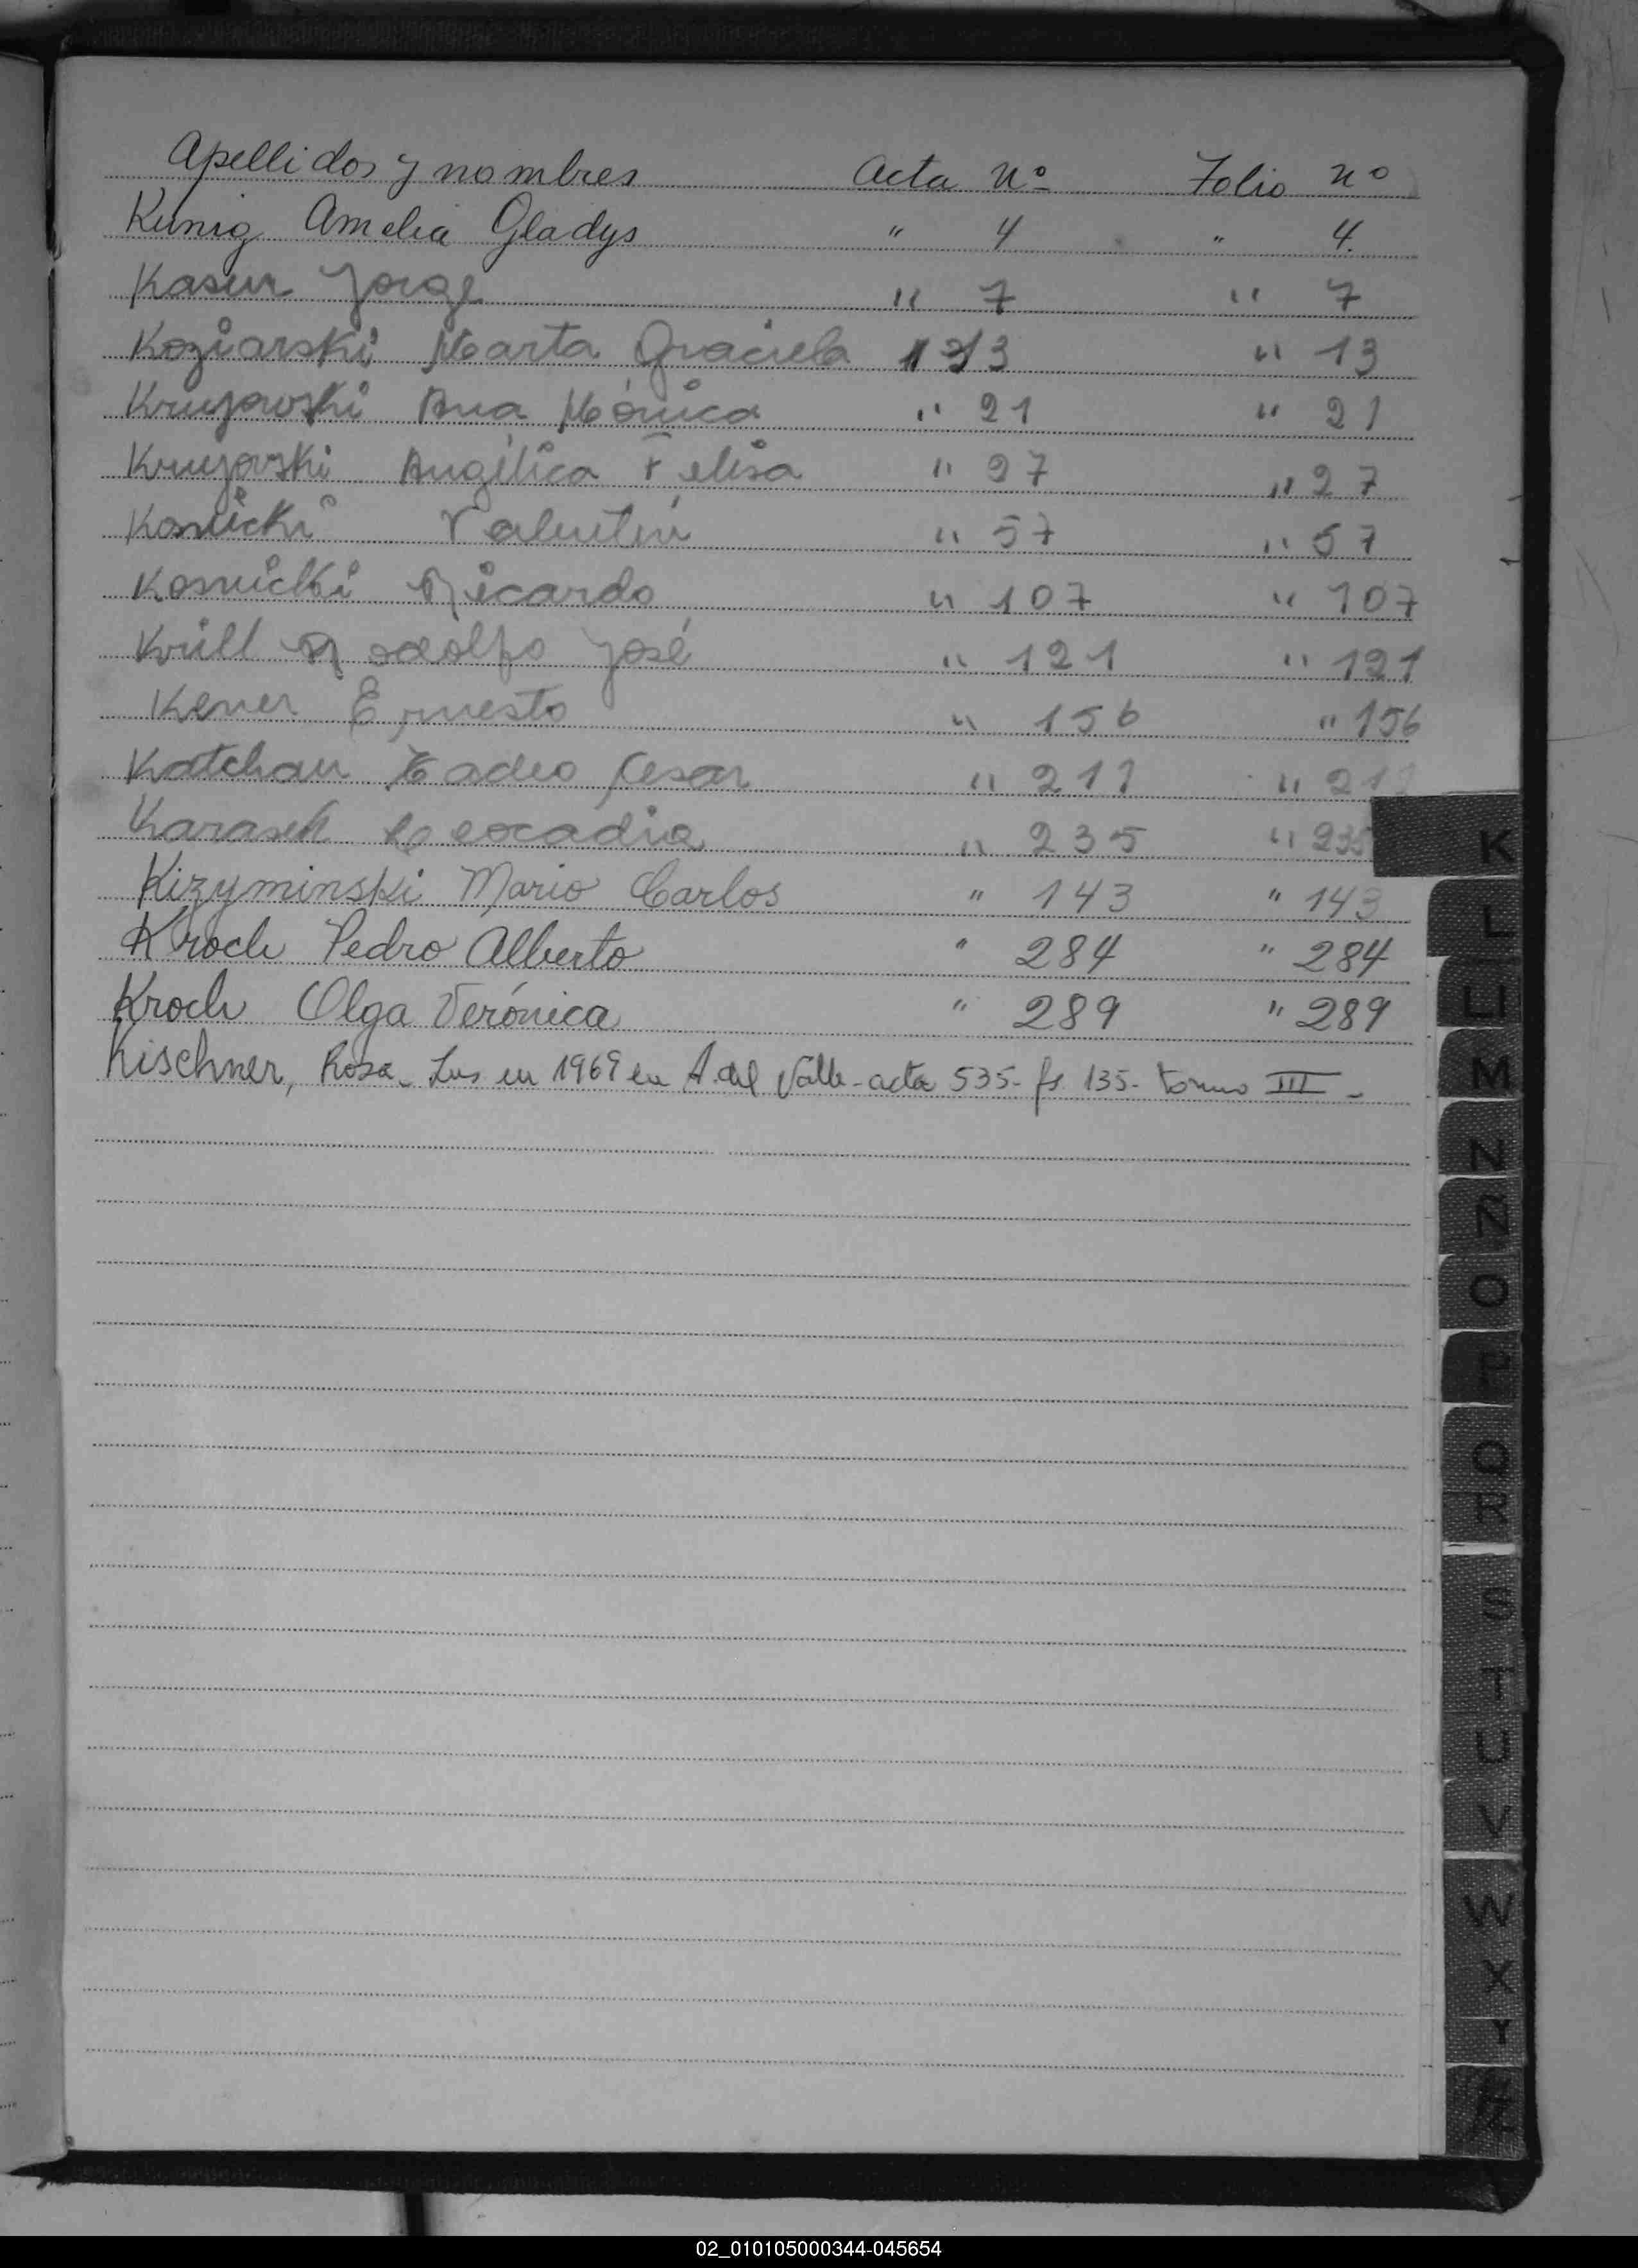 Apellidos y nombres Acta Nº Folio nº
Kunig Amelia Gladys " 4 " 4.
Kasur Jorge " 7 " 7
Koziarski Marta Graciela 13 " 13
Krujowski Ana Mónica " 21 " 21
Krujovski Angélica Felisa " 27 " 27
Kosnicki Valentin " 57 " 57
Kosnicki Ricardo " 107 " 107
Krüll Rodolfo José " 121 " 121
Kener Ernesto " 156 " 156
Katchan Tadeo Cesar " 211 " 211
Karasek Leocadia " 235 " 235
Kizyminski Mario Carlos " 143 " 143
Kroch Pedro Alberto " 284 " 284
Kroch Olga Verónica " 289 " 289
Kischner, Rosa - Ins en 1969 en A. del Valle - acta 535 - fs. 135 - tomo III -
K
L
LL
M
N
Ñ
O
P
Q
R
S
T
U
V
W
X
Y
Z
02_010105000344-045654